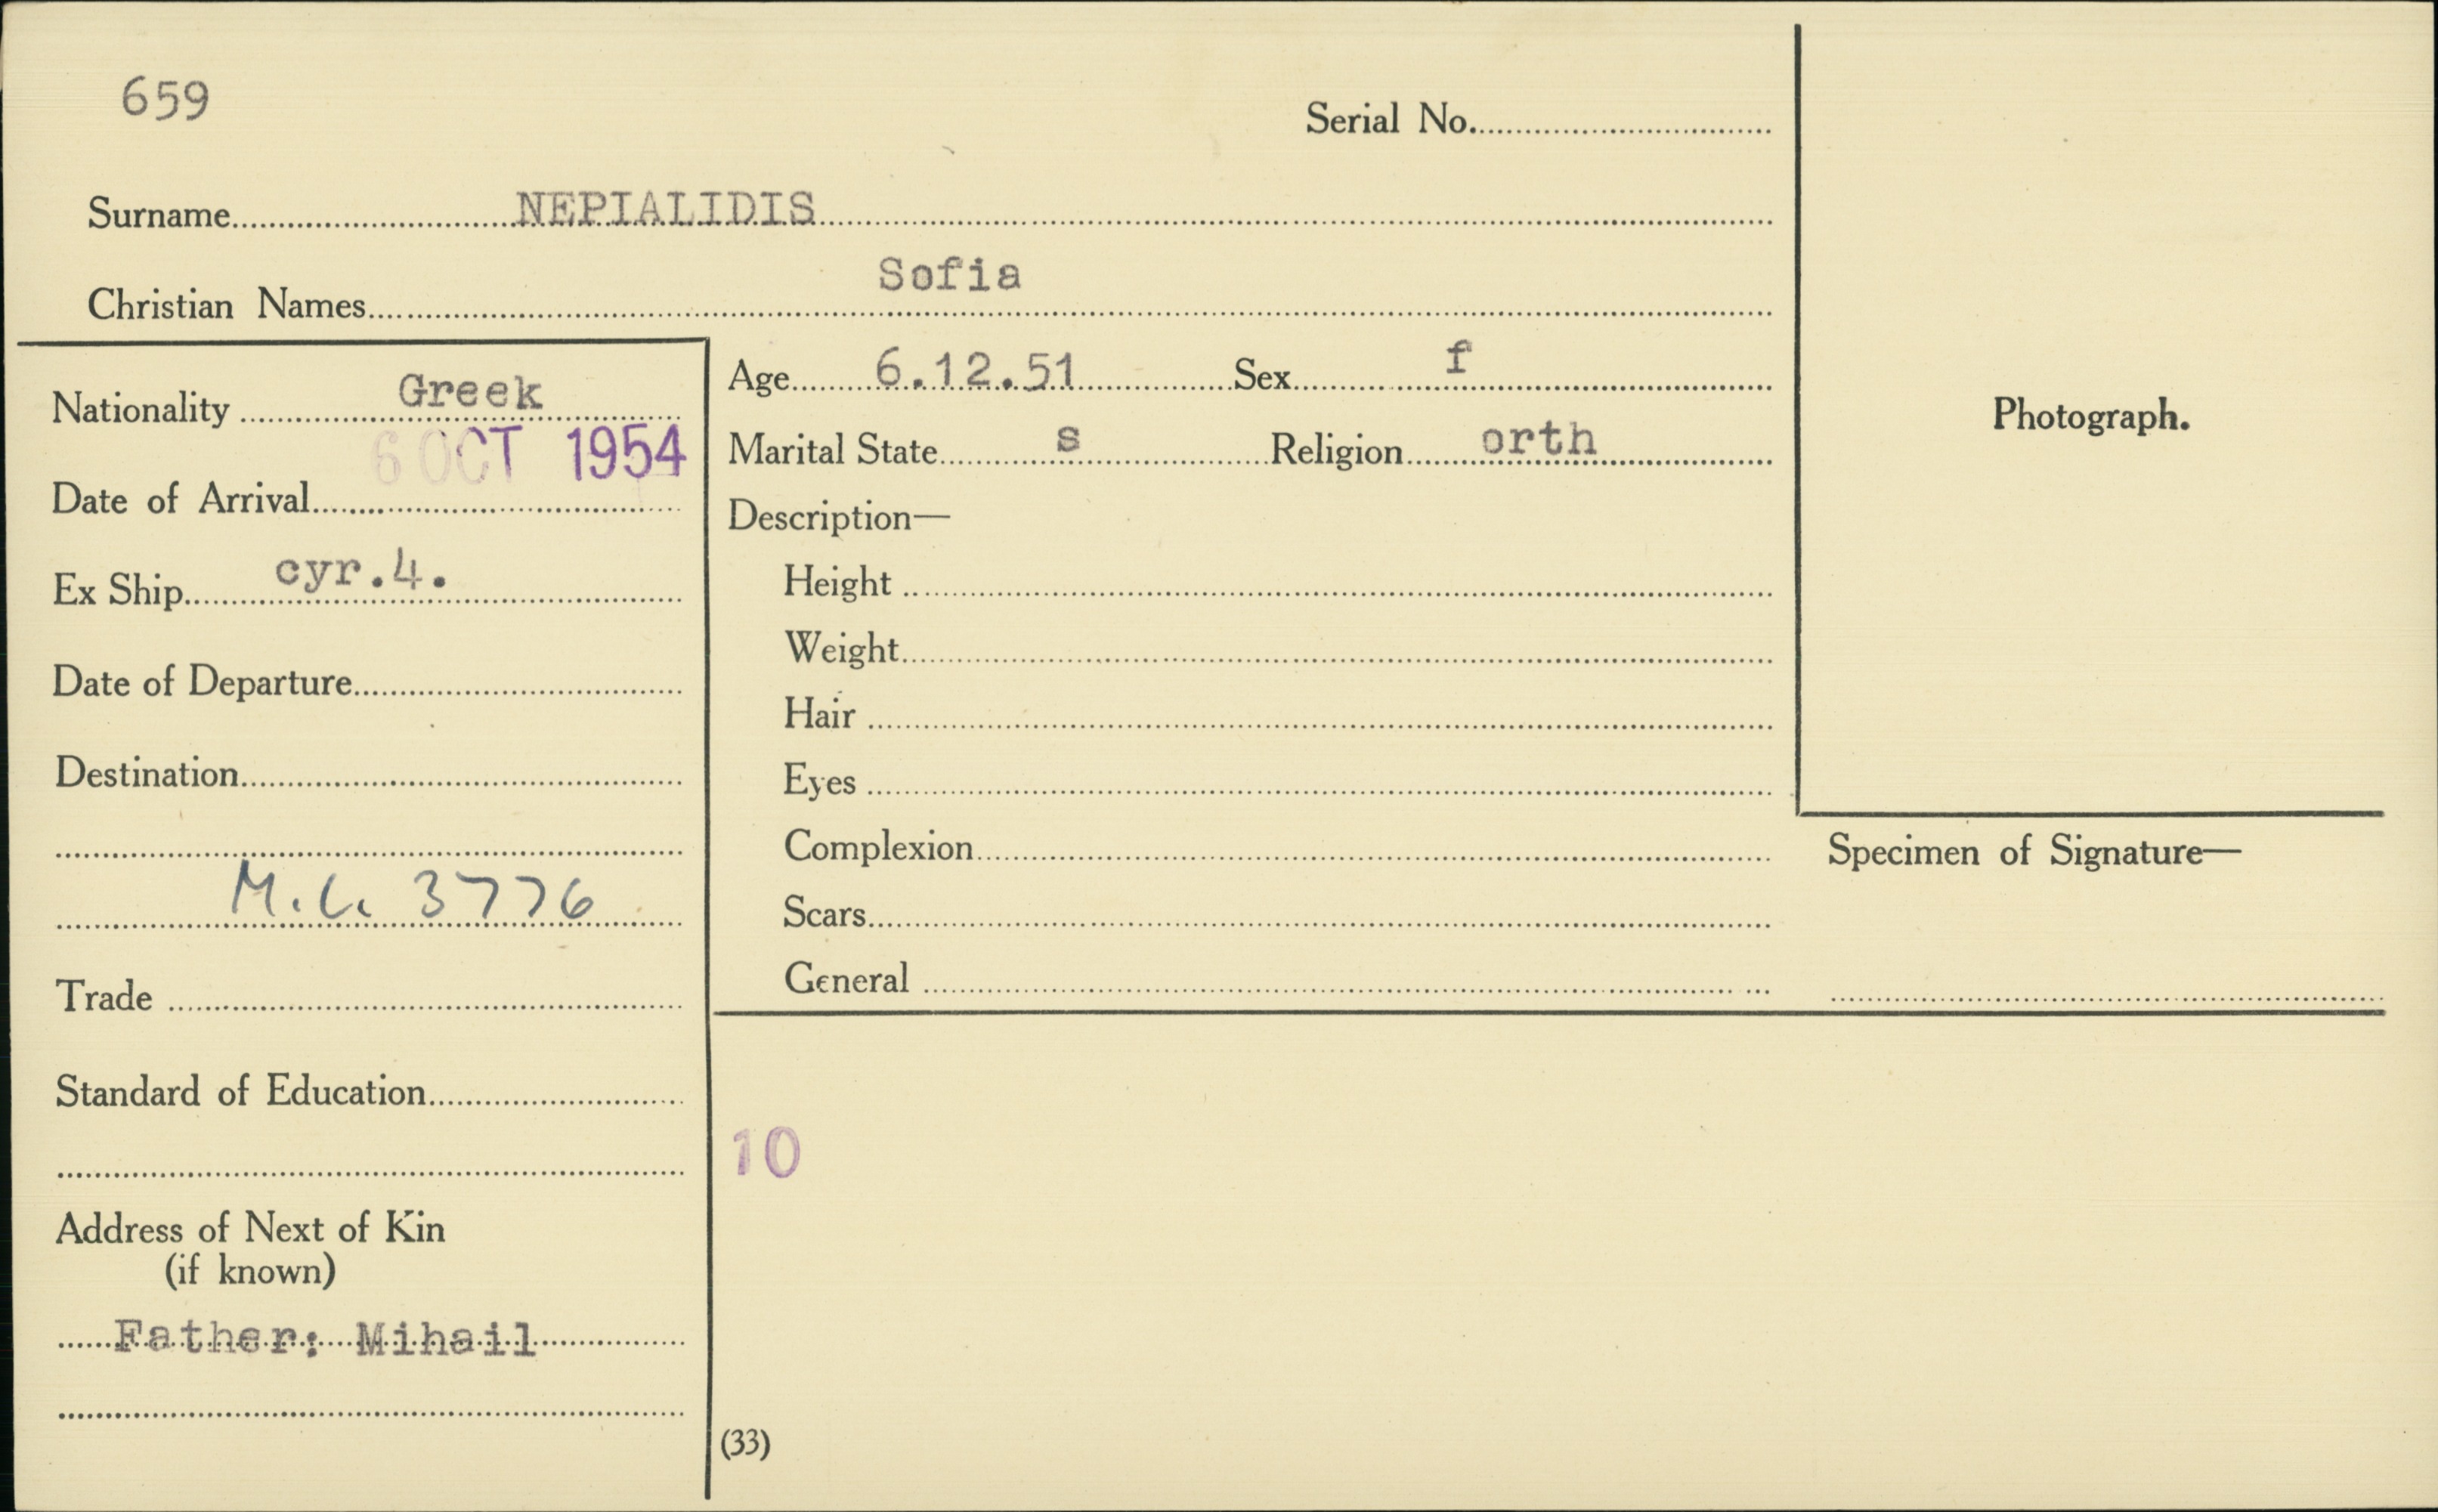 659
Serial No.
Surname NEPIALIDIS
Christian Names Sofia
Nationality Greek
Date of Arrival 6 OCT 1954
Ex Ship cyr.4.
Date of Departure
Destination
M.C. 3776
Trade
Standard of Education
Address of Next of Kin
(if known)
Father: Mihail
Age 6.12.51 Sex f
Marital State s Religion orth
Description—
Height
Weight
Hair
Eyes
Complexion
Scars
General
10
(33)
Photograph.
Specimen of Signature—